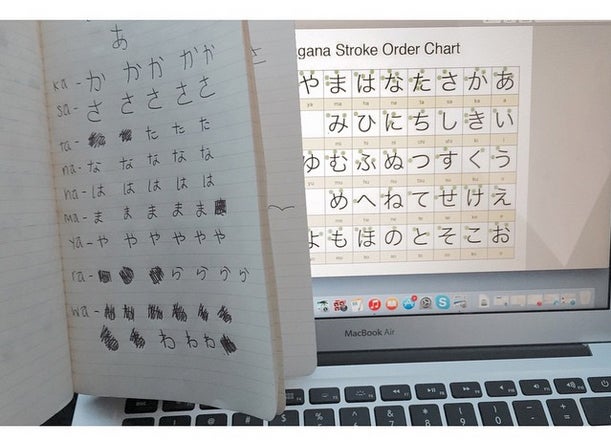 あ
ka- か か か か か
sa- さ さ さ さ さ
ta- た た た
na- な な な な な
ha- は は は は は
ma- ま ま ま ま
ya- や や や や や や
ra- ら ら ら ら
wa-
わ わ わ
gana Stroke Order Chart
や ま は な た さ か あ
ya ma ha na ta sa ka a
み ひ に ち し き い
ゆ む ふ ぬ つ す く う
め へ ね て せ け え
よ も ほ の と そ こ お
MacBook Air